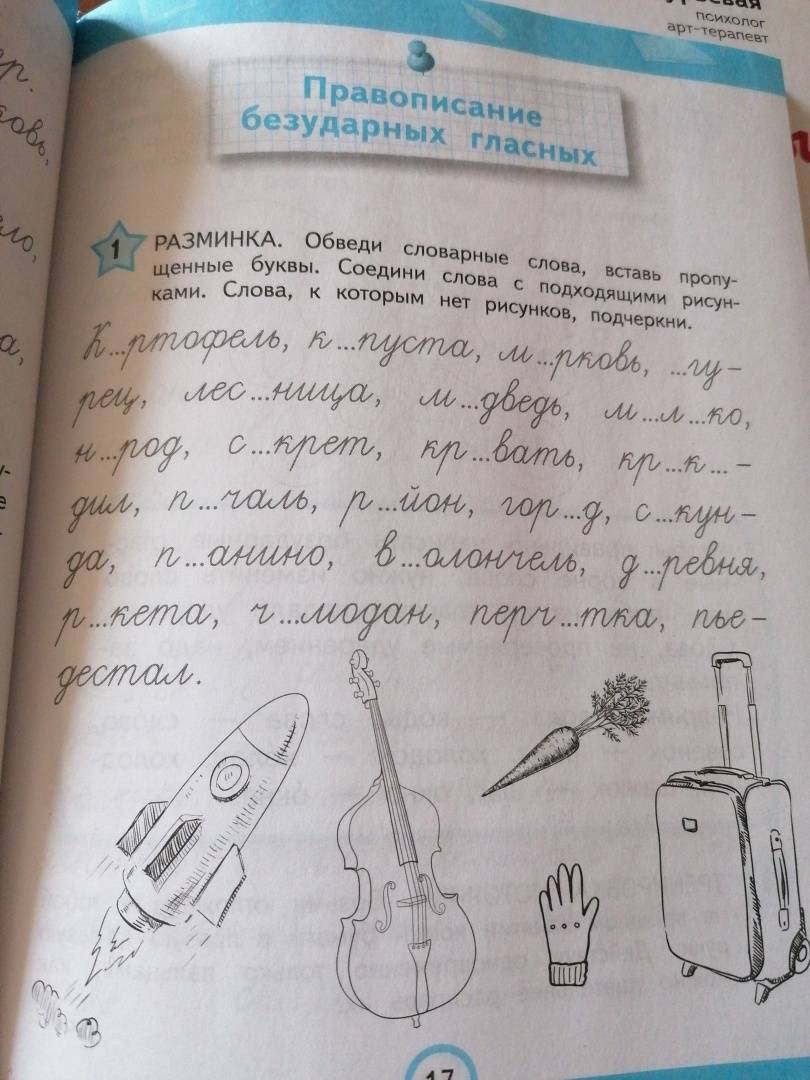 психолог
арт-терапевт
Правописание
безударных гласных
1 РАЗМИНКА. Обведи словарные слова, вставь пропу-
щенные буквы. Соедини слова с подходящими рисун-
ками. Слова, к которым нет рисунков, подчеркни.
К...ртофель, к...пуста, м...рковь, ...гу-
рец, лес...ница, м...дведь, м...л...ко,
н...род, с...крет, кр...вать, кр...к...-
дил, п...чаль, р...йон, гор...д, с...кун-
да, п...анино, в...олончель, д...ревня,
р...кета, ч...модан, перч...тка, пье-
дестал.
17